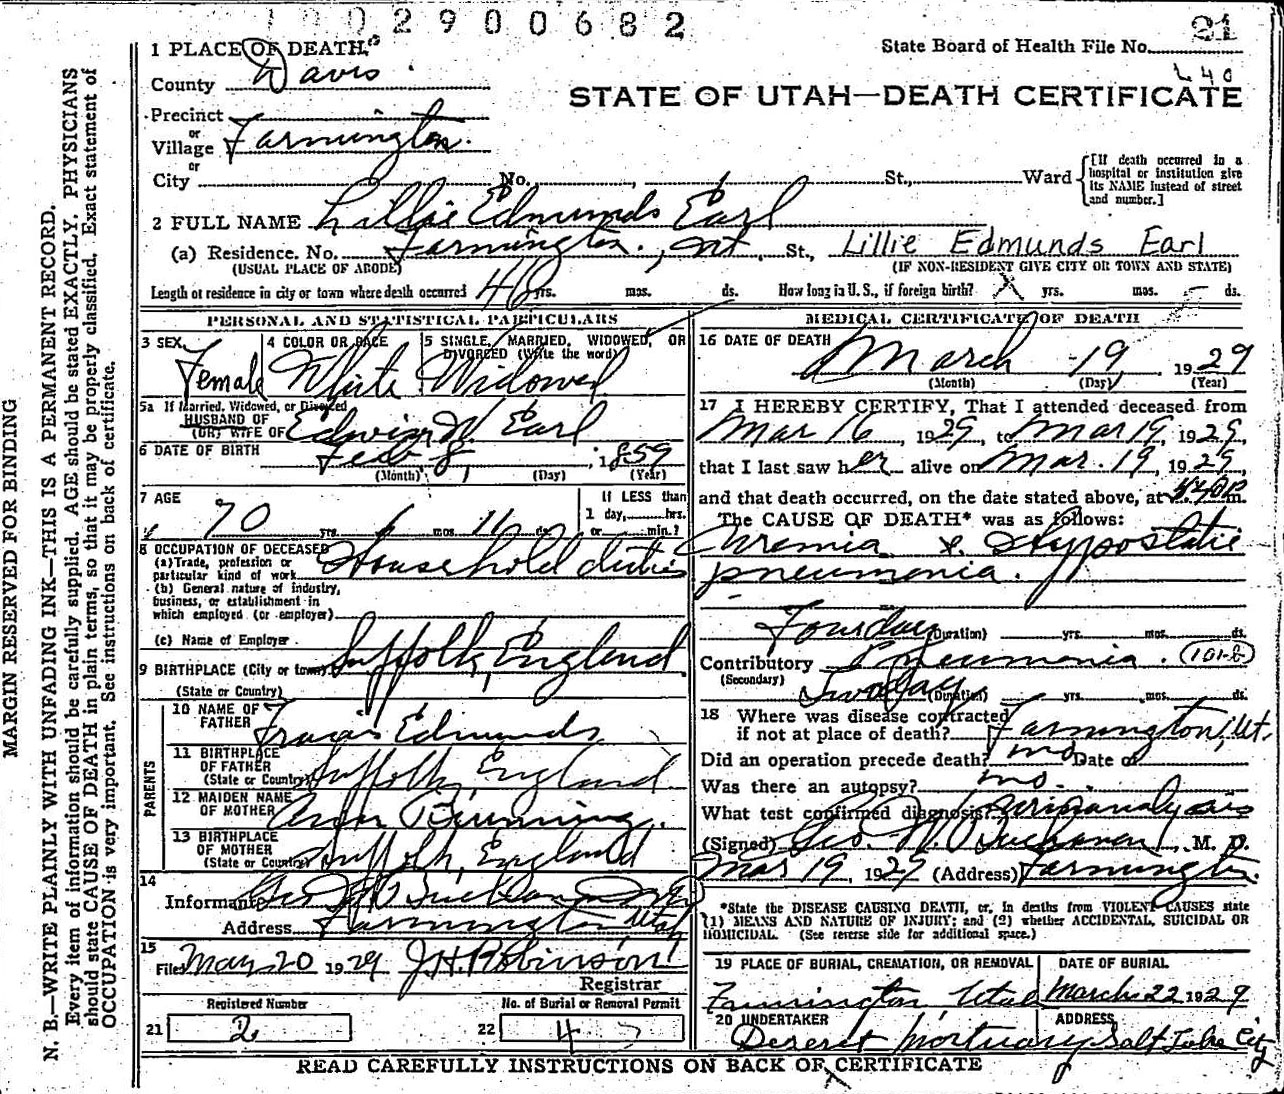 2900682
21
1 PLACE OF DEATH
State Board of Health File No.
County Davis
240
STATE OF UTAH—DEATH CERTIFICATE
Precinct
or
Village Farmington
or
City No. St., Ward
[If death occurred in a hospital or institution give its NAME instead of street and number.]
2 FULL NAME Lillie Edmunds Earl
(a) Residence. No. Farmington, Ut St., Lillie Edmunds Earl
(USUAL PLACE OF ABODE) (IF NON-RESIDENT GIVE CITY OR TOWN AND STATE)
Length of residence in city or town where death occurred 48 yrs. mos. ds. How long in U. S., if foreign birth? X yrs. mos. ds.
PERSONAL AND STATISTICAL PARTICULARS
3 SEX 4 COLOR OR RACE 5 SINGLE, MARRIED, WIDOWED, OR DIVORCED (Write the word)
Female White Widowed
5a If Married, Widowed, or Divorced
HUSBAND OF
(OR) WIFE OF Edwin W. Earl
6 DATE OF BIRTH Feb 8, 1859
(Month) (Day) (Year)
7 AGE
70 yrs. 1 mos. 11 ds.
If LESS than 1 day, hrs. or min.?
8 OCCUPATION OF DECEASED
(a) Trade, profession or particular kind of work Household duties
(b) General nature of industry, business, or establishment in which employed (or employer)
(c) Name of Employer
9 BIRTHPLACE (City or town) Suffolk, England
(State or Country)
PARENTS
10 NAME OF FATHER Edmunds
11 BIRTHPLACE OF FATHER (State or Country) Suffolk, England
12 MAIDEN NAME OF MOTHER Ann
13 BIRTHPLACE OF MOTHER (State or Country) Suffolk, England
14
Informant
Address Farmington, Utah
15
Filed 20 1929 J.H. Robinson
Registrar
Registered Number No. of Burial or Removal Permit
21 2 22 4
MEDICAL CERTIFICATE OF DEATH
16 DATE OF DEATH
March 19, 1929
(Month) (Day) (Year)
17 I HEREBY CERTIFY, That I attended deceased from
Mar 16, 1929, to Mar 19, 1929,
that I last saw her alive on Mar. 19, 1929,
and that death occurred, on the date stated above, at m.
The CAUSE OF DEATH* was as follows:
Uremia & Hypostatic
pneumonia.
Four days (Duration) yrs. mos. ds.
Contributory Pneumonia. (101-b)
(Secondary)
Two days (Duration) yrs. mos. ds.
18 Where was disease contracted
if not at place of death? Farmington, Ut.
Did an operation precede death? no Date of
Was there an autopsy? no.
What test confirmed diagnosis? Urinanalysis
(Signed) Geo. W. Buchanan, M. D.
Mar 19, 1929 (Address) Farmington.
*State the DISEASE CAUSING DEATH, or, in deaths from VIOLENT CAUSES state
(1) MEANS AND NATURE OF INJURY; and (2) whether ACCIDENTAL, SUICIDAL OR
HOMICIDAL. (See reverse side for additional space.)
19 PLACE OF BURIAL, CREMATION, OR REMOVAL DATE OF BURIAL
Farmington Utah March 22 1929
20 UNDERTAKER ADDRESS
Deseret Mortuary Salt Lake City
READ CAREFULLY INSTRUCTIONS ON BACK OF CERTIFICATE
MARGIN RESERVED FOR BINDING
N. B.—WRITE PLAINLY WITH UNFADING INK—THIS IS A PERMANENT RECORD.
Every item of information should be carefully supplied. AGE should be stated EXACTLY. PHYSICIANS
should state CAUSE OF DEATH in plain terms, so that it may be properly classified. Exact statement of
OCCUPATION is very important. See instructions on back of certificate.